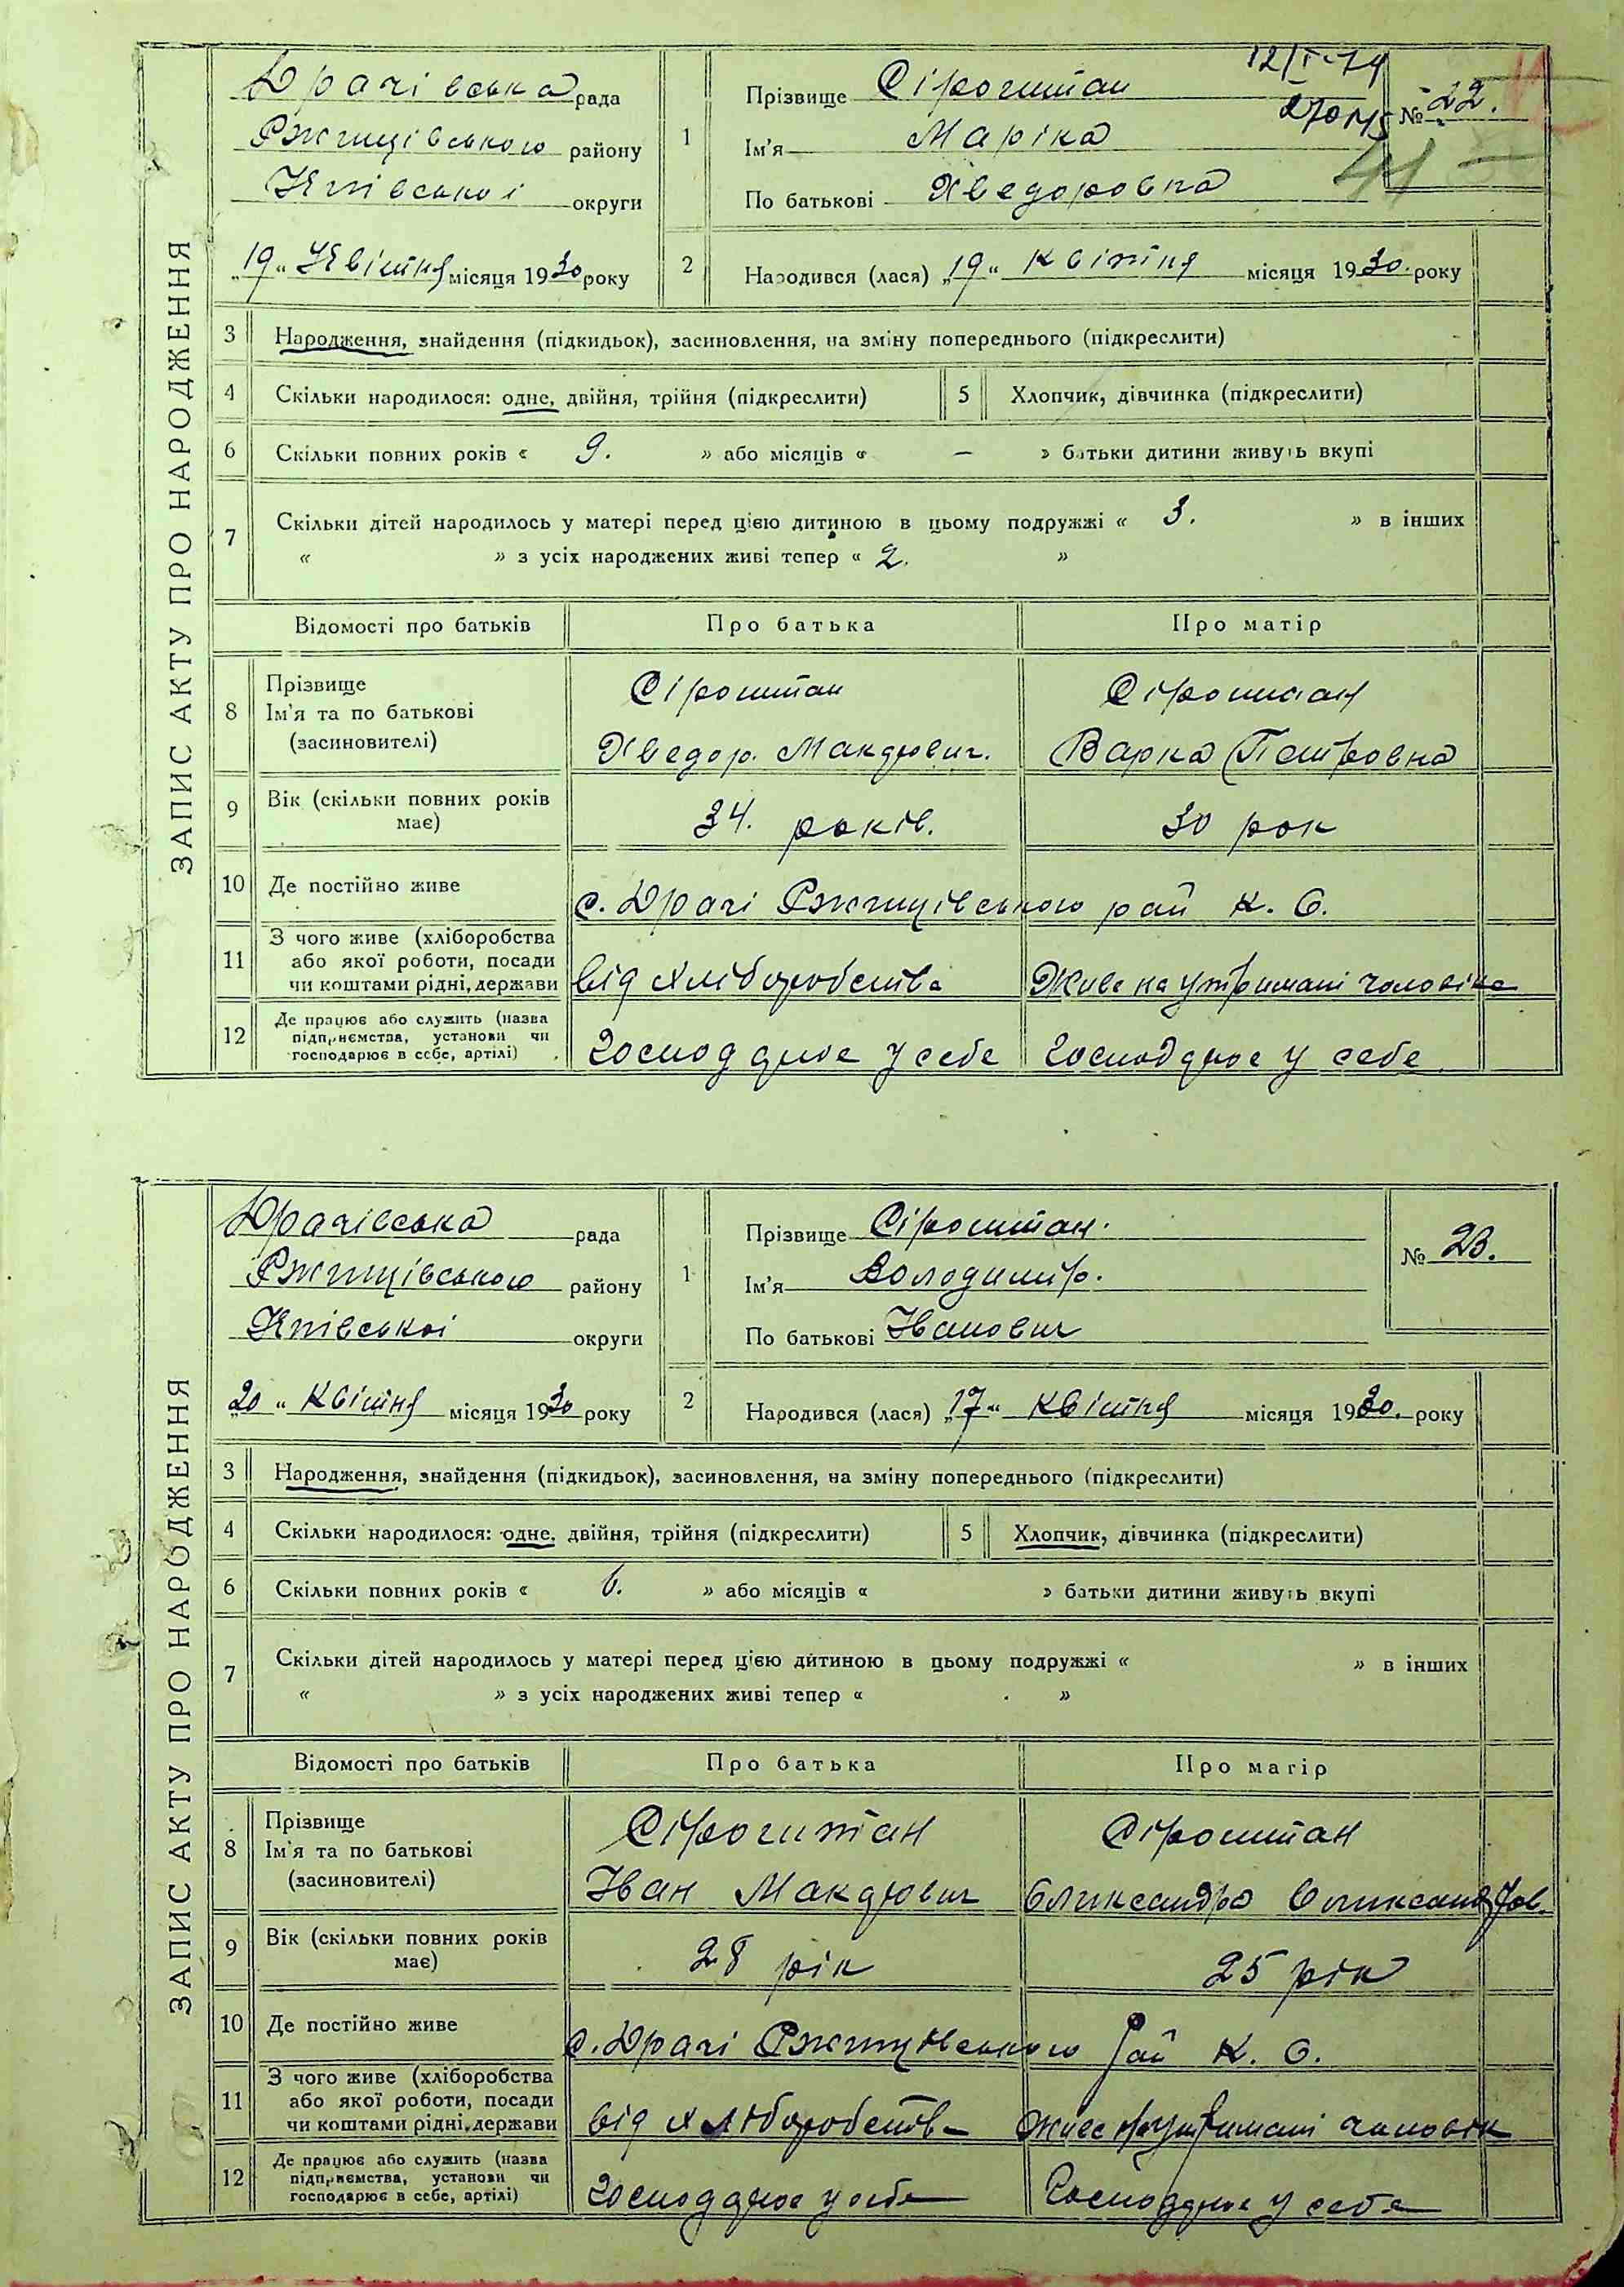 ЗАПИС АКТУ ПРО НАРОДЖЕННЯ
Драчівська рада
Ржищівського району
Київської округи
„19“ Квітня місяця 1930 року
1
Прізвище Сіроштан
Ім'я Маріка
По батькові Хведоровна
12/I-74
№ 22.
41
2
Народився (лася) „19“ квітня місяця 1930. року
3 Народження, знайдення (підкидьок), засиновлення, на зміну попереднього (підкреслити)
4 Скільки народилося: одне, двійня, трійня (підкреслити)
5 Хлопчик, дівчинка (підкреслити)
6 Скільки повних років « 9. » або місяців « – » батьки дитини живуть вкупі
7 Скільки дітей народилось у матері перед цією дитиною в цьому подружжі « 3. » в інших
« » з усіх народжених живі тепер « 2. »
Відомості про батьків Про батька Про матір
8 Прізвище Ім'я та по батькові (засиновителі)
Сіроштан Сіроштан
Хведор. Макдович. Варка Петровна
9 Вік (скільки повних років має) 34. років. 30 рок
10 Де постійно живе с. Драчі Ржищівського рай К. О.
11 З чого живе (хліборобства або якої роботи, посади чи коштами рідні, держави
від хліборобства Живе на утримані чоловіка
12 Де працює або служить (назва підприємства, установи чи господарює в себе, артілі)
Господарює у себе Господарює у себе
ЗАПИС АКТУ ПРО НАРОДЖЕННЯ
Драчівська рада
Ржищівського району
Київської округи
„20“ Квітня місяця 1930 року
1
Прізвище Сіроштан.
Ім'я Володимір.
По батькові Іванович
№ 23.
2
Народився (лася) „17“ Квітня місяця 1930. року
3 Народження, знайдення (підкидьок), засиновлення, на зміну попереднього (підкреслити)
4 Скільки народилося: одне, двійня, трійня (підкреслити)
5 Хлопчик, дівчинка (підкреслити)
6 Скільки повних років « 6. » або місяців « » батьки дитини живуть вкупі
7 Скільки дітей народилось у матері перед цією дитиною в цьому подружжі « » в інших
« » з усіх народжених живі тепер « »
Відомості про батьків Про батька Про матір
8 Прізвище Ім'я та по батькові (засиновителі)
Сіроштан Сіроштан
Іван Макдович Олександра Олександров.
9 Вік (скільки повних років має) 28 рік 25 рік
10 Де постійно живе с. Драчі Ржищівського Рай К. О.
11 З чого живе (хліборобства або якої роботи, посади чи коштами рідні, держави
від хліборобств Живе на утримані чоловік
12 Де працює або служить (назва підприємства, установи чи господарює в себе, артілі)
Господарює у себе Господарює у себе